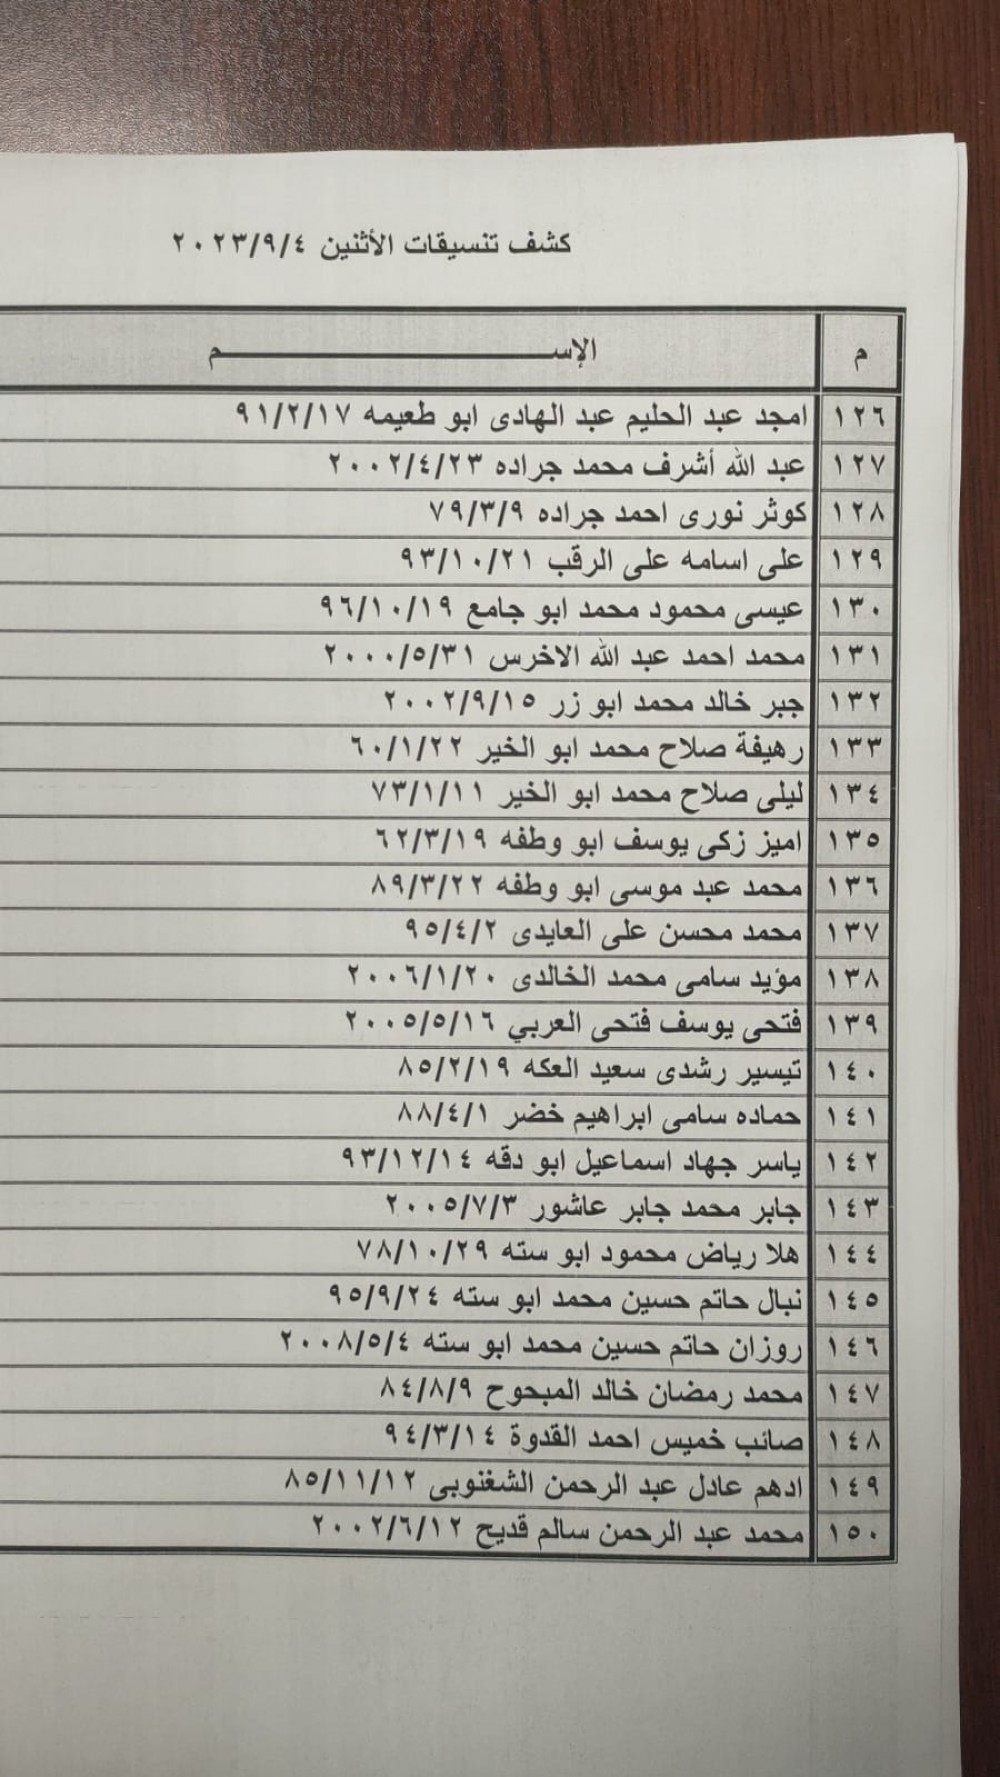 كشف تنسيقات الأثنين ٢٠٢٣/٩/٤
م الإســـــــم
١٢٦ امجد عبد الحليم عبد الهادى ابو طعيمه ٩١/٢/١٧
١٢٧ عبد الله أشرف محمد جراده ٢٠٠٢/٤/٢٣
١٢٨ كوثر نورى احمد جراده ٧٩/٣/٩
١٢٩ على اسامه على الرقب ٩٣/١٠/٢١
١٣٠ عيسى محمود محمد ابو جامع ٩٦/١٠/١٩
١٣١ محمد احمد عبد الله الاخرس ٢٠٠٠/٥/٣١
١٣٢ جبر خالد محمد ابو زر ٢٠٠٢/٩/١٥
١٣٣ رهيفة صلاح محمد ابو الخير ٦٠/١/٢٢
١٣٤ ليلى صلاح محمد ابو الخير ٧٣/١/١١
١٣٥ اميز زكى يوسف ابو وطفه ٦٢/٣/١٩
١٣٦ محمد عبد موسى ابو وطفه ٨٩/٣/٢٢
١٣٧ محمد محسن على العايدى ٩٥/٤/٢
١٣٨ مؤيد سامى محمد الخالدى ٢٠٠٦/١/٢٠
١٣٩ فتحى يوسف فتحى العربي ٢٠٠٥/٥/١٦
١٤٠ تيسير رشدى سعيد العكه ٨٥/٢/١٩
١٤١ حماده سامى ابراهيم خضر ٨٨/٤/١
١٤٢ ياسر جهاد اسماعيل ابو دقه ٩٣/١٢/١٤
١٤٣ جابر محمد جابر عاشور ٢٠٠٥/٧/٣
١٤٤ هلا رياض محمود ابو سته ٧٨/١٠/٢٩
١٤٥ نبال حاتم حسين محمد ابو سته ٩٥/٩/٢٤
١٤٦ روزان حاتم حسين محمد ابو سته ٢٠٠٨/٥/٤
١٤٧ محمد رمضان خالد المبحوح ٨٤/٨/٩
١٤٨ صائب خميس احمد القدوة ٩٤/٣/١٤
١٤٩ ادهم عادل عبد الرحمن الشغنوبى ٨٥/١١/١٢
١٥٠ محمد عبد الرحمن سالم قديح ٢٠٠٢/٦/١٢